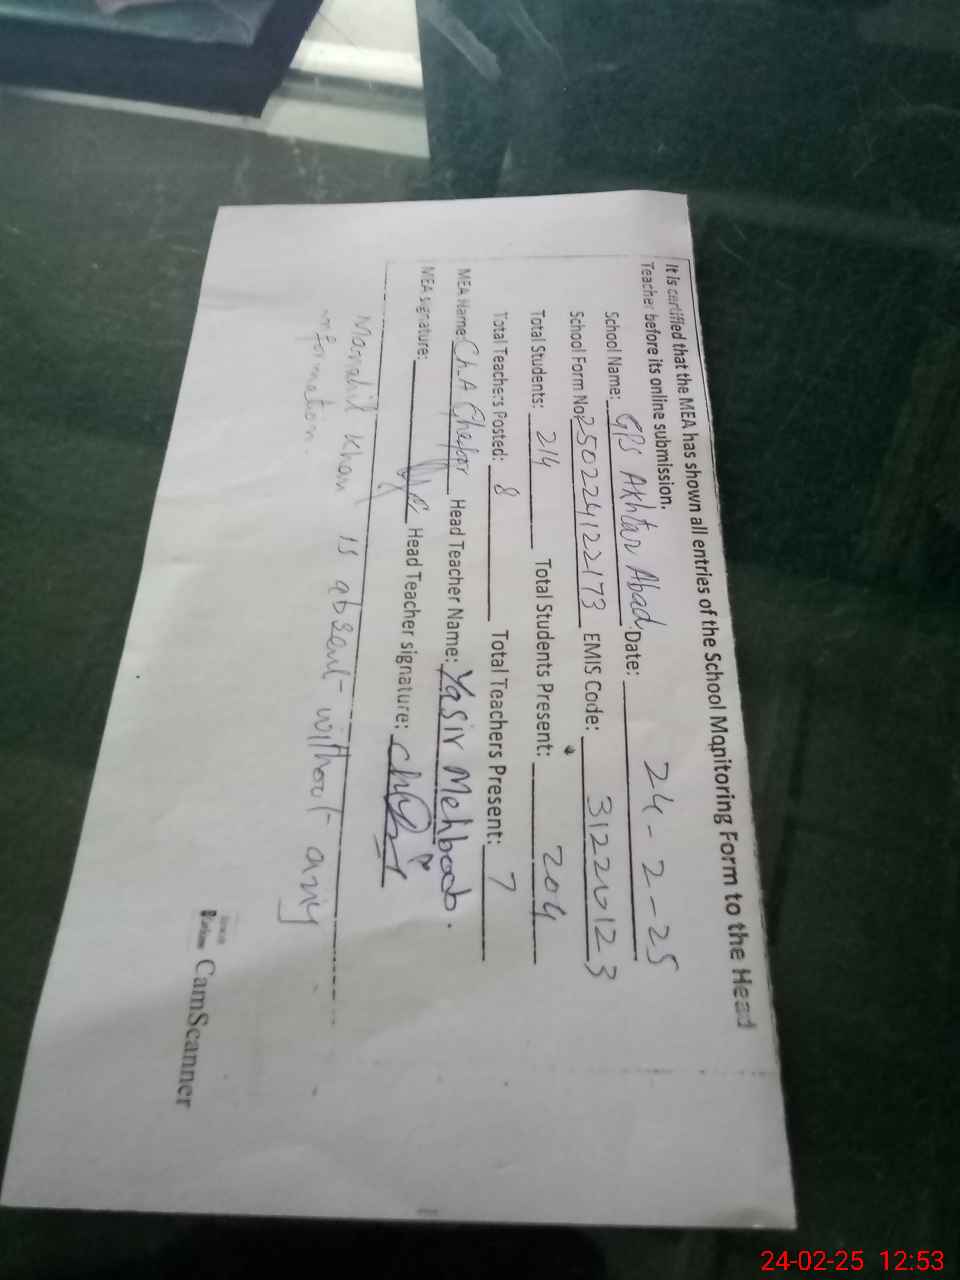 It is certified that the MEA has shown all entries of the School Monitoring Form to the Head
Teacher before its online submission.
School Name: GPS Akhtar Abad Date: 24-2-25
School Form No: 250224122173 EMIS Code: 31220123
Total Students: 214 Total Students Present: 204
Total Teachers Posted: 8 Total Teachers Present: 7
MEA Name: Ch. A Head Teacher Name: Yasir Mehboob.
MEA signature: Head Teacher signature:
Khan is absent without any
information.
CamScanner
24-02-25 12:53